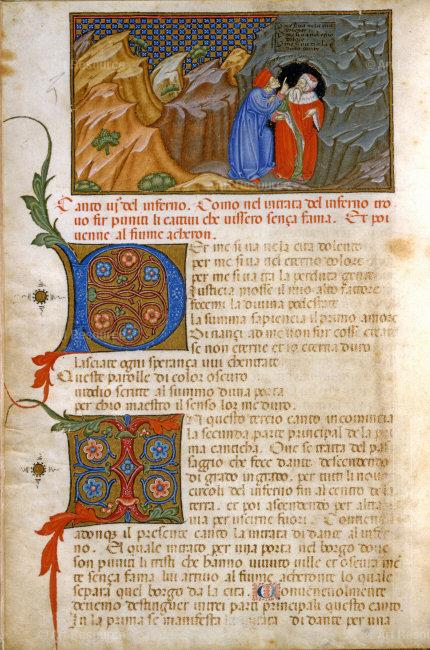 Canto iij del inferno. Como nel intrata del inferno tro
vo fir puniti li cattivi che vissero sença fama. Et poi
venne al fiume acheron.
Per me si va ne la cità dolente
per me si va nel eterno dolore
per me si va tra la perduta gente
Justicia mosse il mio alto factore
fecemi la divina podestate
la summa sapiencia il primo amore
Dinançi a me non fur cosse create
se non eterne et io eterna duro
lasciate ogni sperança vui chentrate
Queste parolle di color oscuro
vidio scritte al summo duna porta
per chio maestro il senso lor me duro.
In questo tercio canto incomincia
la secunda parte principal de la pri
ma canticha. One se tracta del pas
saggio che fece dante descendendo
di grado in grado, per tutti li nove
circoli del inferno fin al centro de la
terra. et poi ascendendo per altra
via per uscirne fuori. Contiene
adonqz il presente canto la intrata di dante al infer
no. El quale intrato per una porta nel borgo dove
son puniti i tristi che hanno vivuto ville et oscura me
te sença fama lui arrivo al fiume acheronte lo quale
separa quel borgo da la cita. Convenevolmente
devemo destinguer in trei parti principali questo canto.
In la prima se manifesta la intrata di dante per una